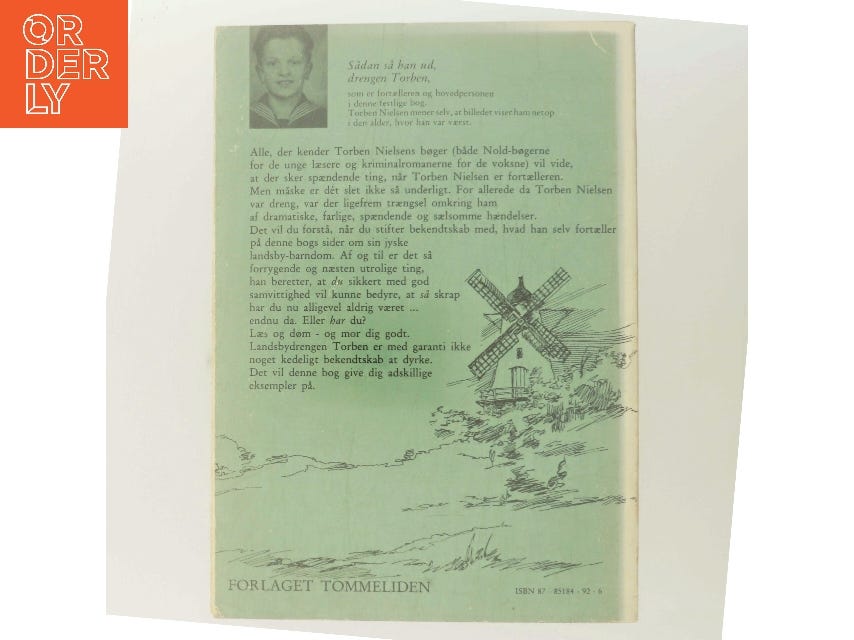 OR
DER
LY
Sådan så han ud,
drengen Torben,
som er fortælleren og hovedpersonen
i denne festlige bog.
Torben Nielsen mener selv, at billedet viser ham netop
i den alder, hvor han var værst.
Alle, der kender Torben Nielsens bøger (både Nold-bøgerne
for de unge læsere og kriminalromanerne for de voksne) vil vide,
at der sker spændende ting, når Torben Nielsen er fortælleren.
Men måske er dét slet ikke så underligt. For allerede da Torben Nielsen
var dreng, var der ligefrem trængsel omkring ham
af dramatiske, farlige, spændende og sælsomme hændelser.
Det vil du forstå, når du stifter bekendtskab med, hvad han selv fortæller
på denne bogs sider om sin jyske
landsby-barndom. Af og til er det så
forrygende og næsten utrolige ting,
han beretter, at du sikkert med god
samvittighed vil kunne bedyre, at så skrap
har du nu alligevel aldrig været ...
endnu da. Eller har du?
Læs og døm - og mor dig godt.
Landsbydrengen Torben er med garanti ikke
noget kedeligt bekendtskab at dyrke.
Det vil denne bog give dig adskillige
eksempler på.
FORLAGET TOMMELIDEN
ISBN 87 - 85184 - 92 - 6